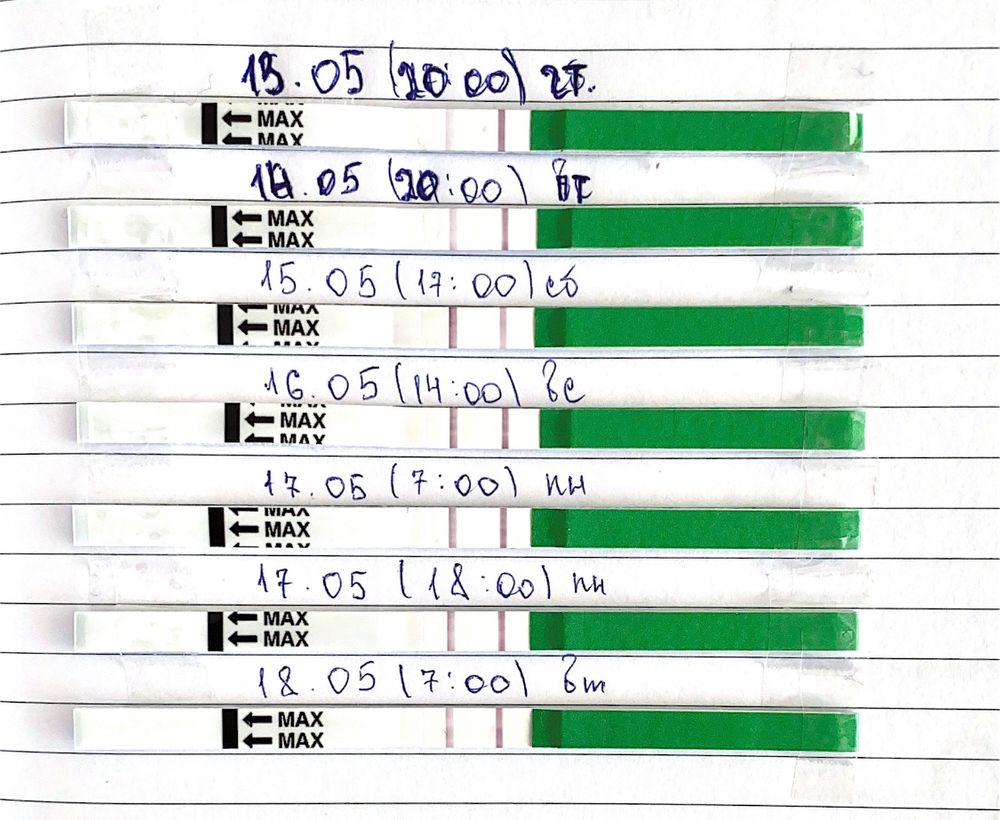 13.05 (20:00) чт.
MAX
MAX
MAX
14.05 (20:00) пт
MAX
MAX
15.05 (17:00) сб
MAX
MAX
MAX
16.05 (14:00) вс
MAX
MAX
MAX
17.05 (7:00) пн
MAX
MAX
MAX
17.05 (18:00) пн
MAX
MAX
18.05 (7:00) вт
MAX
MAX